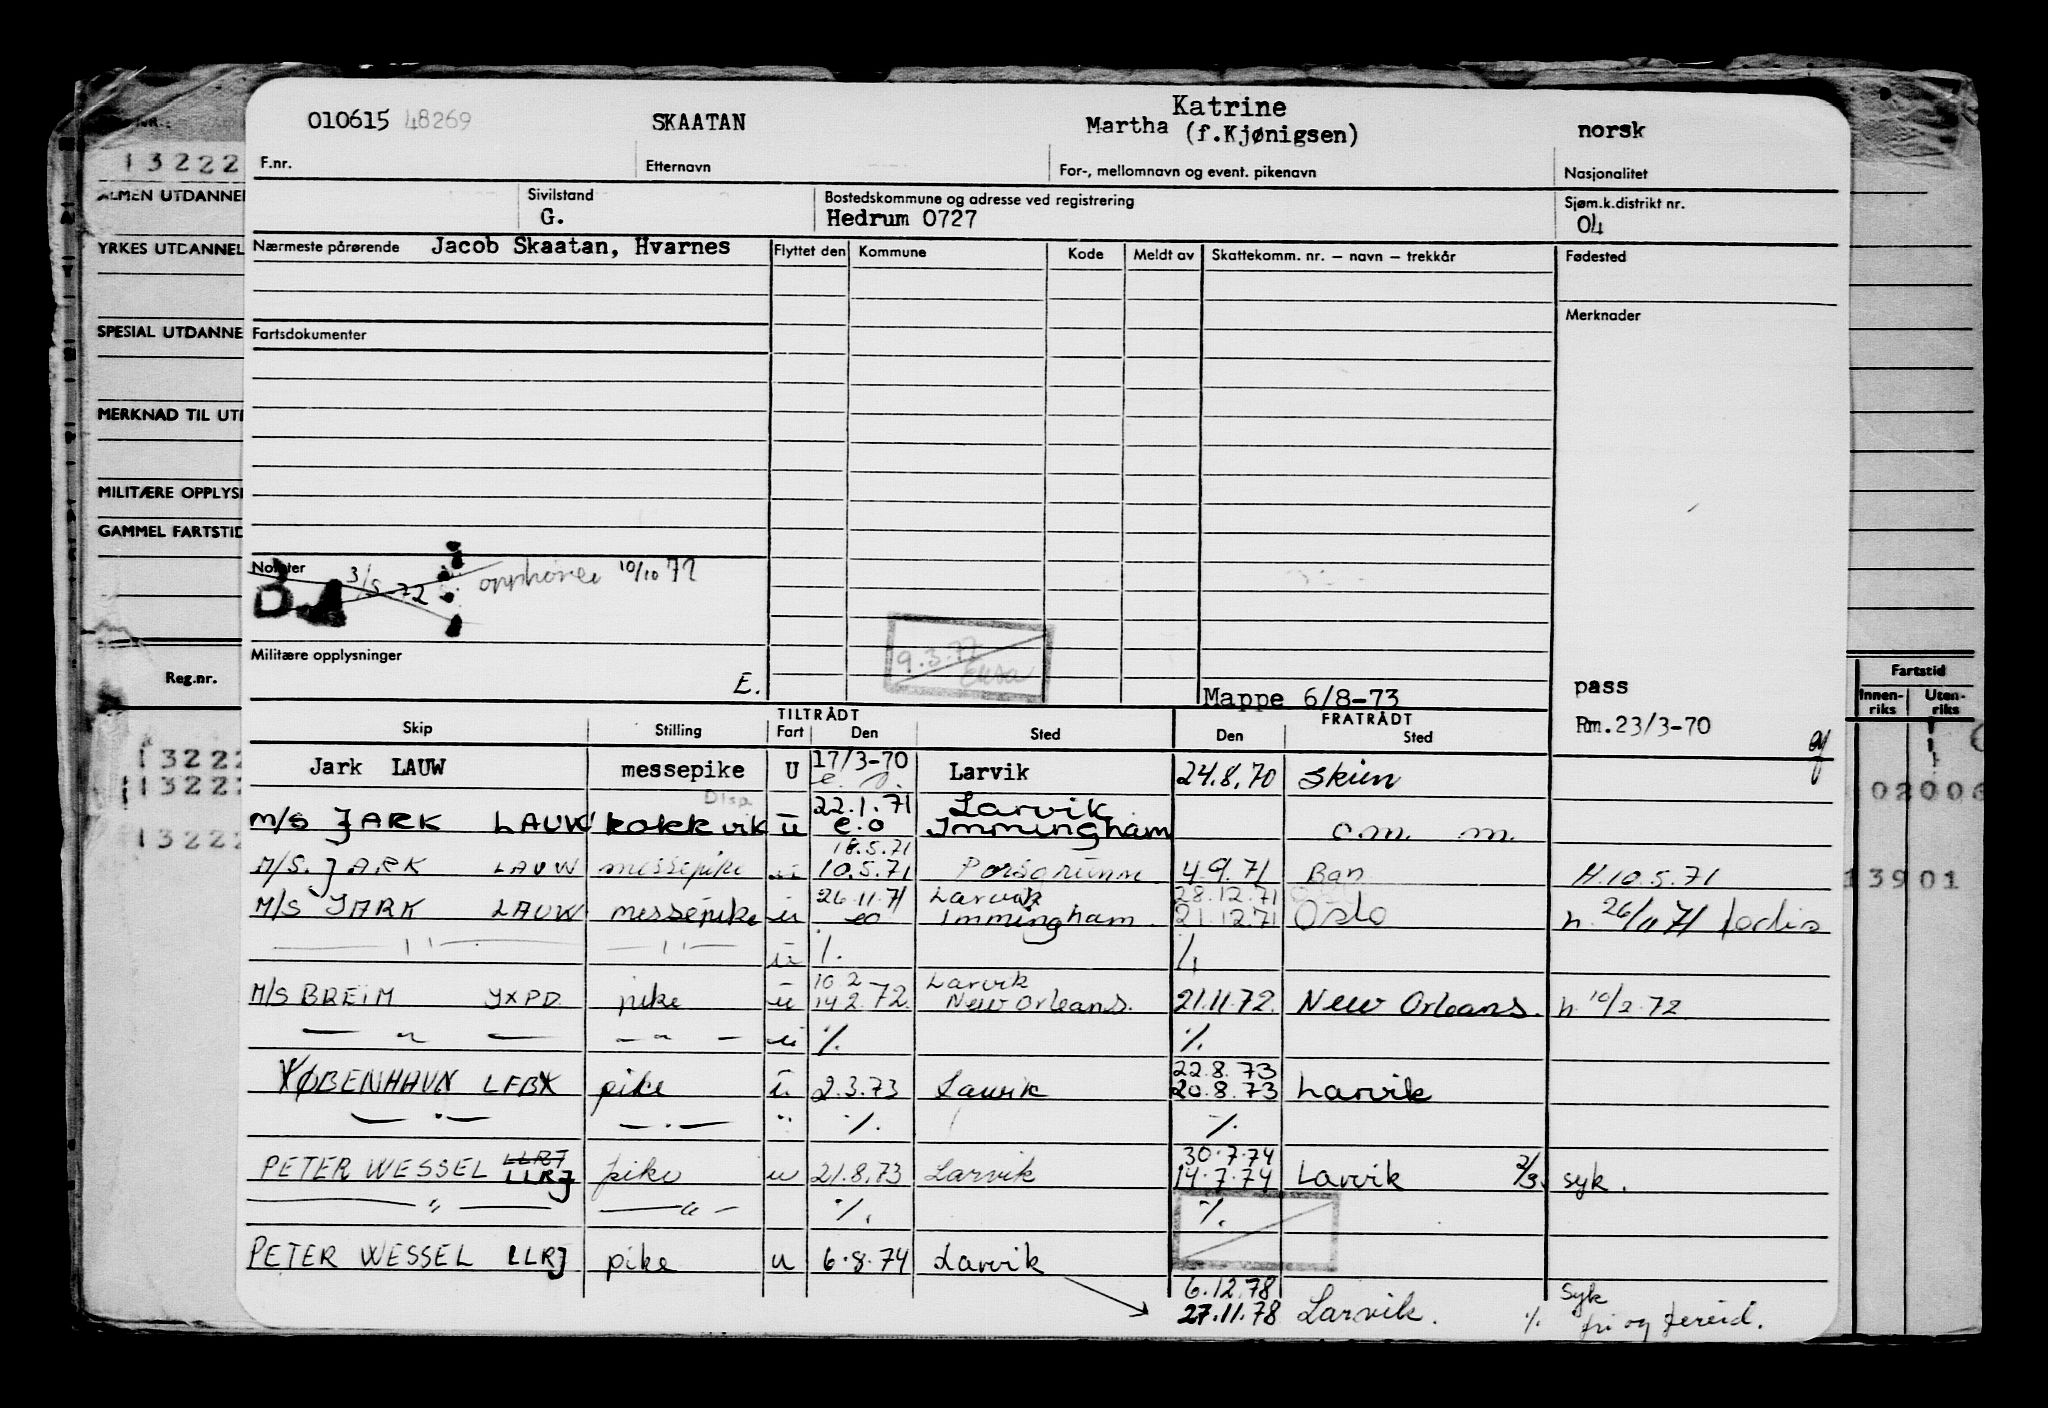 010615 48269 SKAATAN Katrine
Martha (f.Kjønigsen) norsk
F.nr. Etternavn For-, mellomnavn og event. pikenavn Nasjonalitet
13222
ALMEN UTDANNEL
Sivilstand Bostedskommune og adresse ved registrering Sjøm.k.distrikt nr.
G. Hedrum 0727 04
YRKES UTDANNEL
Nærmeste pårørende Jacob Skaatan, Hvarnes Flyttet den Kommune Kode Meldt av Skattekomm. nr. – navn – trekkår Fødested
Merknader
SPESIAL UTDANNE
Fartsdokumenter
MERKNAD TIL UT
MILITÆRE OPPLYS
GAMMEL FARTSTID
Notater 3/5 72 opphører 10/10 72
Militære opplysninger
9.3.77
E.
Reg.nr.
Fartstid
Innen-riks Uten-riks
Mappe 6/8-73 pass
Rm.23/3-70
TILTRÅDT FRATRÅDT
Skip Stilling Fart Den Sted Den Sted
Jark LAUW messepike U 17/3-70 Larvik 24.8.70 Skien
Disp.
22.1.71 Larvik
M/S JARK LAUW kokkvik u e.o Immingham o.m. m.
18.5.71
M/S. JARK LAUW messepike u 10.5.71 Porsgrunn 4.9.71 Ban H.10.5.71
26.11.71 Larvik 28.12.71
M/S JARK LAUW messepike u eo Immingham 21.12.71 Oslo h. 26/11 71
— " — — " — u %. %
10 2 Larvik
M/S BREIM YXPD pike u 14 2.72. New Orleans. 21.11.72. New Orleans. h. 10/2.72
— " — — " — u %. %.
22.8.73
KØBENHAVN LFBX pike u 2.3.73 Larvik 20.8.73 Larvik
— " — — " — " %. %.
LLRJ 30.7.74
PETER WESSEL LLRJ pike u 21.8.73 Larvik 14.7.74 Larvik 2/3. syk.
— " — — " — %. %.
PETER WESSEL LLRJ pike u 6.8.74 Larvik
6.12.78 Syk
27.11.78 Larvik. %. fri og fereid.
13222
13222
13222
02006
13901